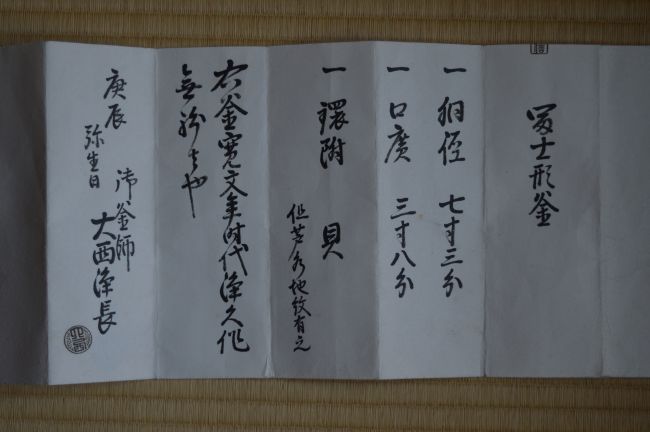 冨士形釜
一 胴径 七寸三分
一 口廣 三寸八分
一 環附 貝
但芦水地紋有之
右釜寛文年时代浄久作
無紛者也
庚辰
弥生日
御釜師
大西浄長